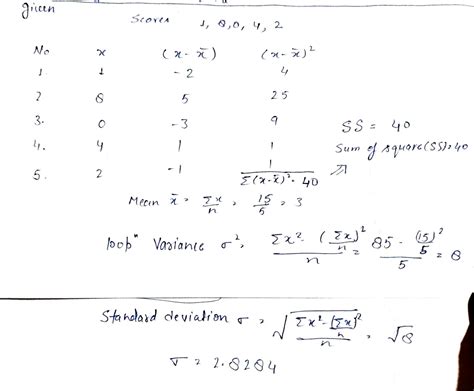 given
Scores 1, 8, 0, 4, 2
No x (x - x̄) (x - x̄)²
1. 1 -2 4
2 8 5 25
3. 0 -3 9
SS = 40
4. 4 1 1
Sum of square(SS)=40
5. 2 -1 1
Σ(x-x̄)² = 40
Mean x̄ = Σx/n = 15/5 = 3
popⁿ Variance σ² = (Σx² - (Σx)²/n)/n = (85 - (15)²/5)/5 = 8
Standard deviation σ = √((Σx² - [Σx]²/n)/n) = √8
σ = 2.8284